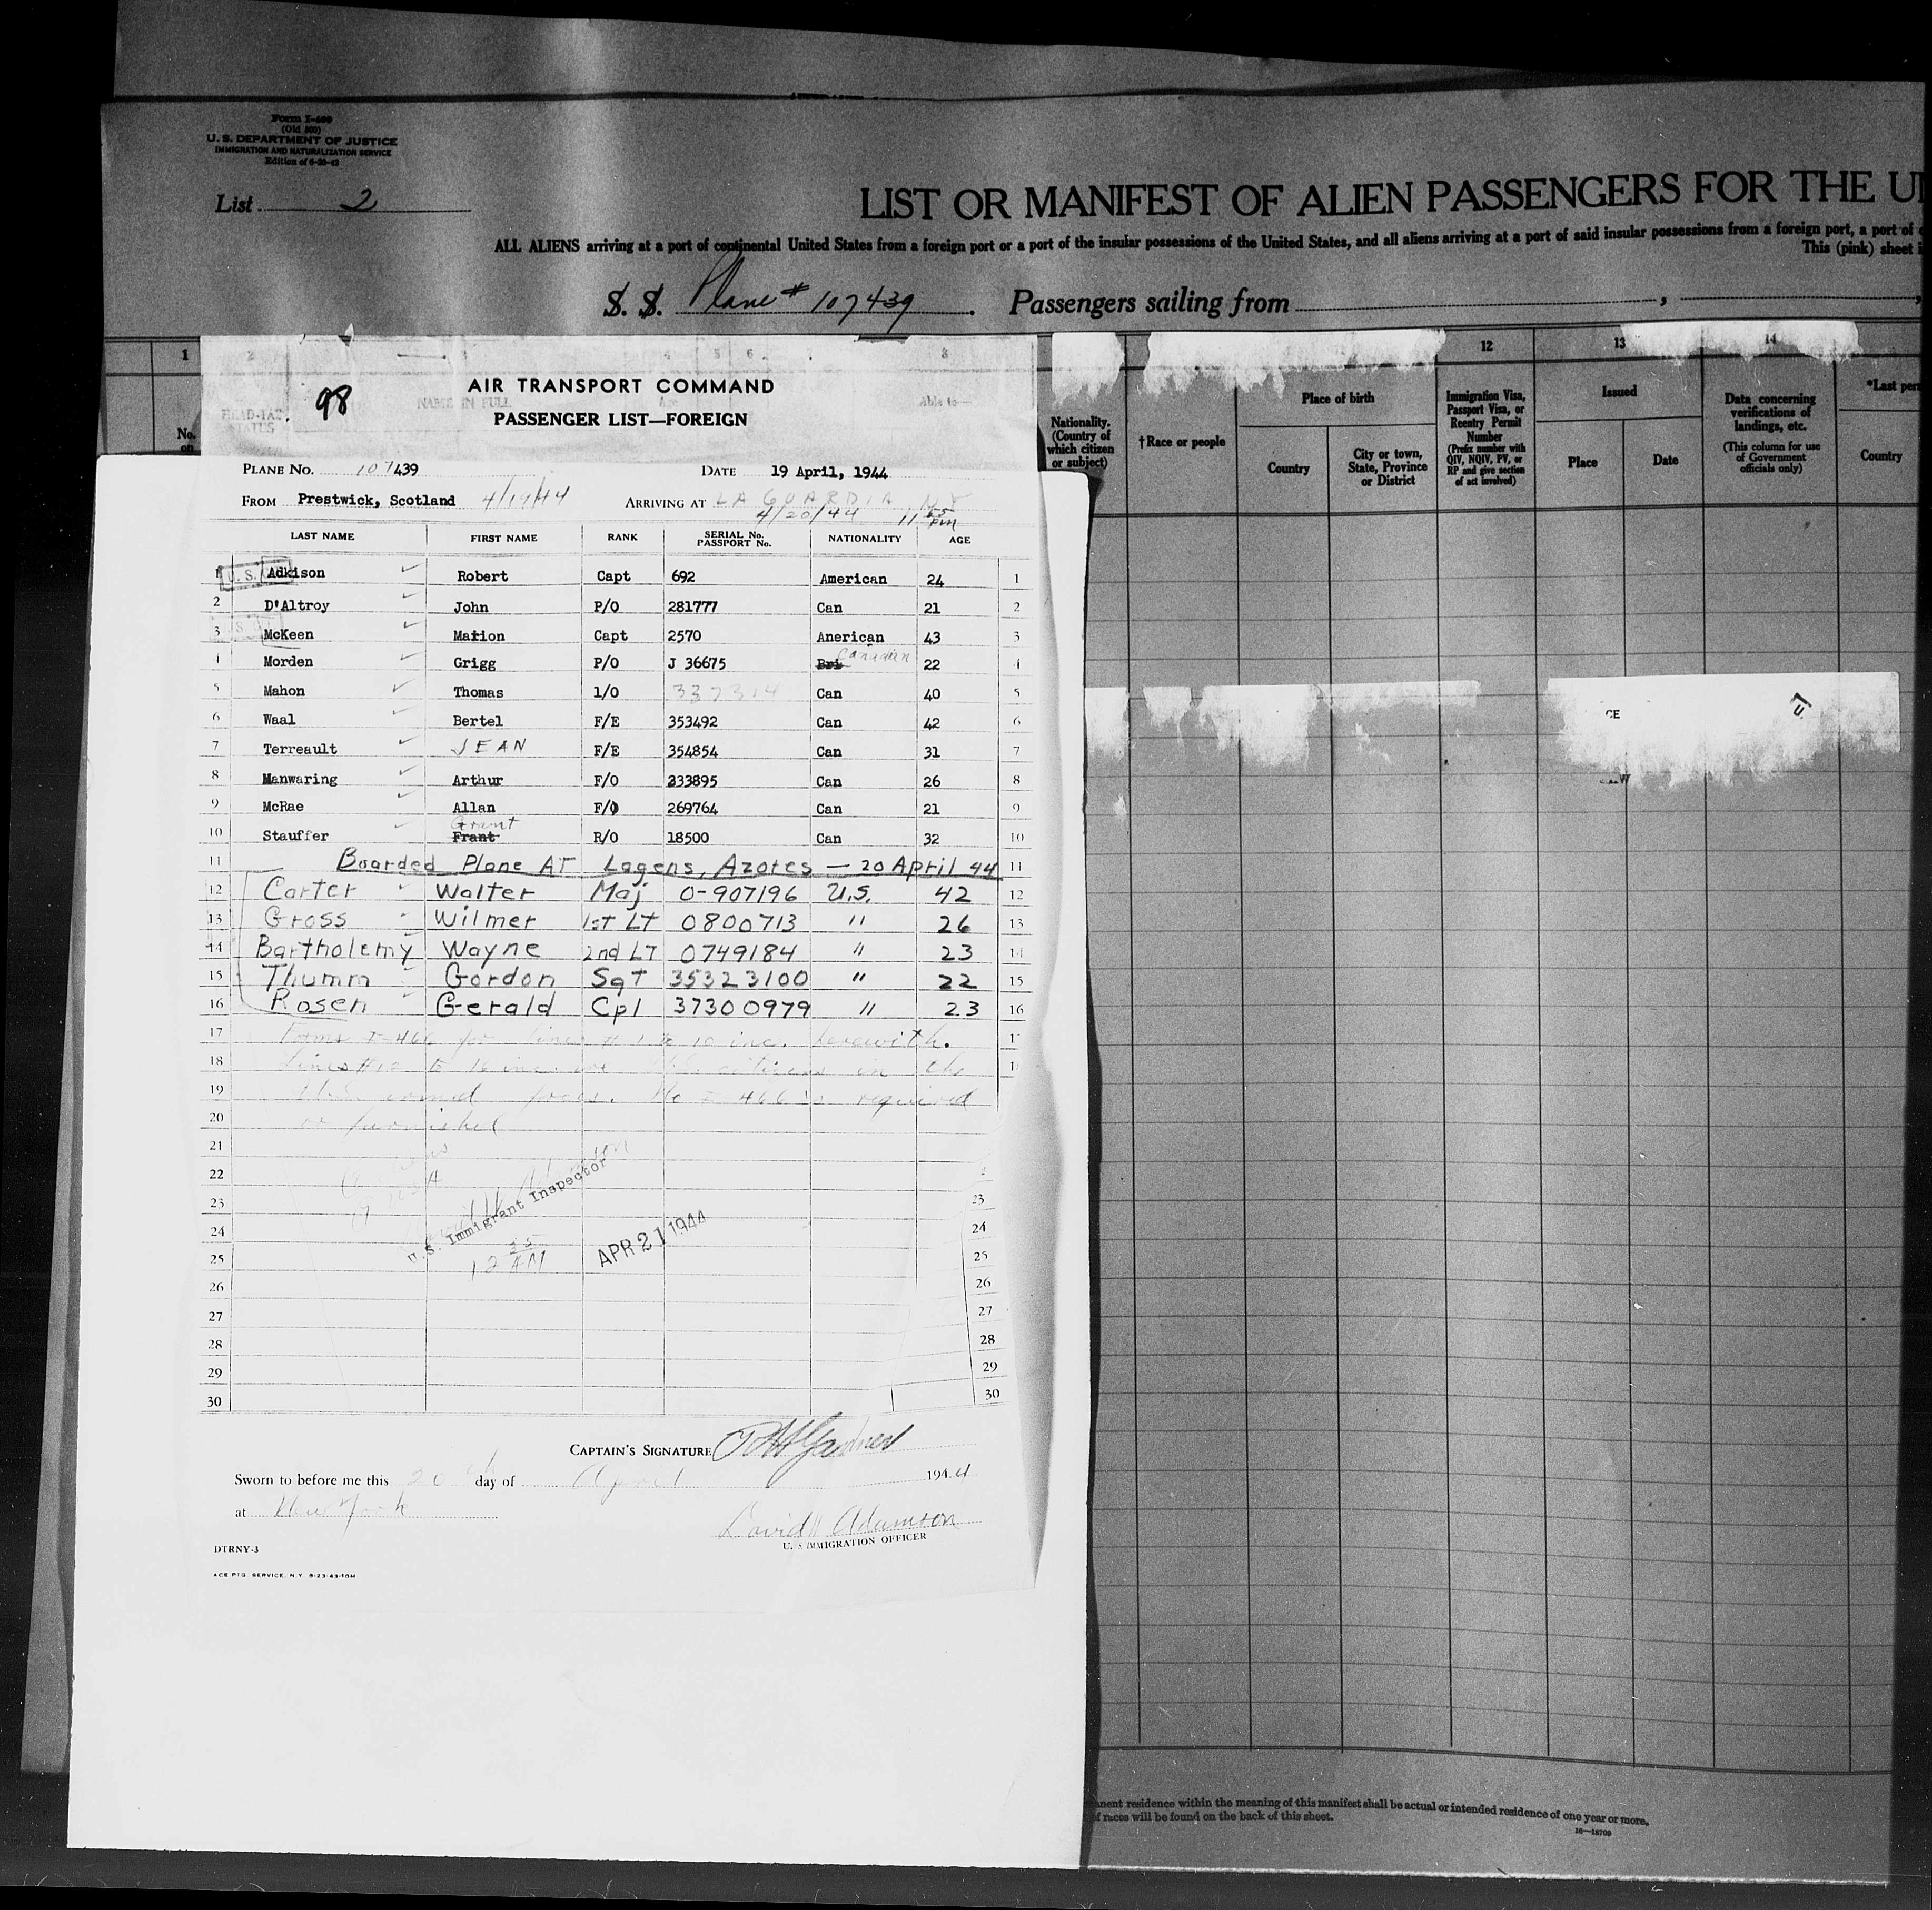 Form I-400
(Old 500)
U. S. DEPARTMENT OF JUSTICE
IMMIGRATION AND NATURALIZATION SERVICE
Edition of 6-20-42
List 2
LIST OR MANIFEST OF ALIEN PASSENGERS FOR THE U
ALL ALIENS arriving at a port of continental United States from a foreign port or a port of the insular possessions of the United States, and all aliens arriving at a port of said insular possessions from a foreign port, a port of
This (pink) sheet
S. S. Plane # 107439. Passengers sailing from
1 2 3 4 5 6 8 12 13 14
HEAD-TAX STATUS
NAME IN FULL
Able to—
No. on
Nationality. (Country of which citizen or subject)
†Race or people
Place of birth
Country
City or town, State, Province or District
Immigration Visa, Passport Visa, or Reentry Permit Number
(Prefix number with QIV, NQIV, PV, or RP and give section of act involved)
Issued
Place
Date
Data concerning verifications of landings, etc.
(This column for use of Government officials only)
*Last per
Country
98
AIR TRANSPORT COMMAND
PASSENGER LIST—FOREIGN
PLANE NO. 107439 DATE 19 April, 1944
FROM Prestwick, Scotland 4/19/44 ARRIVING AT LA GUARDIA NY
4/20/44 11 pm
LAST NAME FIRST NAME RANK SERIAL No. PASSPORT No. NATIONALITY AGE
1 Adkison Robert Capt 692 American 24 1
2 D'Altroy John P/O 281777 Can 21 2
3 McKeen Marion Capt 2570 Anerican 43 3
4 Morden Grigg P/O J 36675 Bri Canadian 22 4
5 Mahon Thomas 1/O 337314 Can 40 5
6 Waal Bertel F/E 353492 Can 42 6
7 Terreault JEAN F/E 354854 Can 31 7
8 Manwaring Arthur F/O 333895 Can 26 8
9 McRae Allan F/O 269764 Can 21 9
10 Stauffer Frant Grant R/O 18500 Can 32 10
11 Boarded Plane AT Lagens, Azores — 20 April 44 11
12 Carter Walter Maj O-907196 U.S. 42 12
13 Gross Wilmer 1st LT 0800713 " 26 13
14 Bartholemy Wayne 2nd LT 0749184 " 23 14
15 Thumm Gordon Sgt 35323100 " 22 15
16 Rosen Gerald Cpl 37300979 " 23 16
17 Forms I-466 for lines # 1 to 10 inc. herewith.
18 Lines #12 to 16 inc. are U.S. citizens in the
19 U.S. armed forces. No I 466 is required
20 or furnished
21
22
23 23
24 24
25 25
26 26
27 27
28 28
29 29
30 30
U.S. Immigrant Inspector
12 35 AM
APR 21 1944
CAPTAIN'S SIGNATURE
Sworn to before me this 20th day of April 1944
at New York
David H Adamson
U. S. IMMIGRATION OFFICER
DTRNY-3
ACE PTG. SERVICE. N.Y. 8-23-43-10M
anent residence within the meaning of this manifest shall be actual or intended residence of one year or more.
f races will be found on the back of this sheet.
16—18709